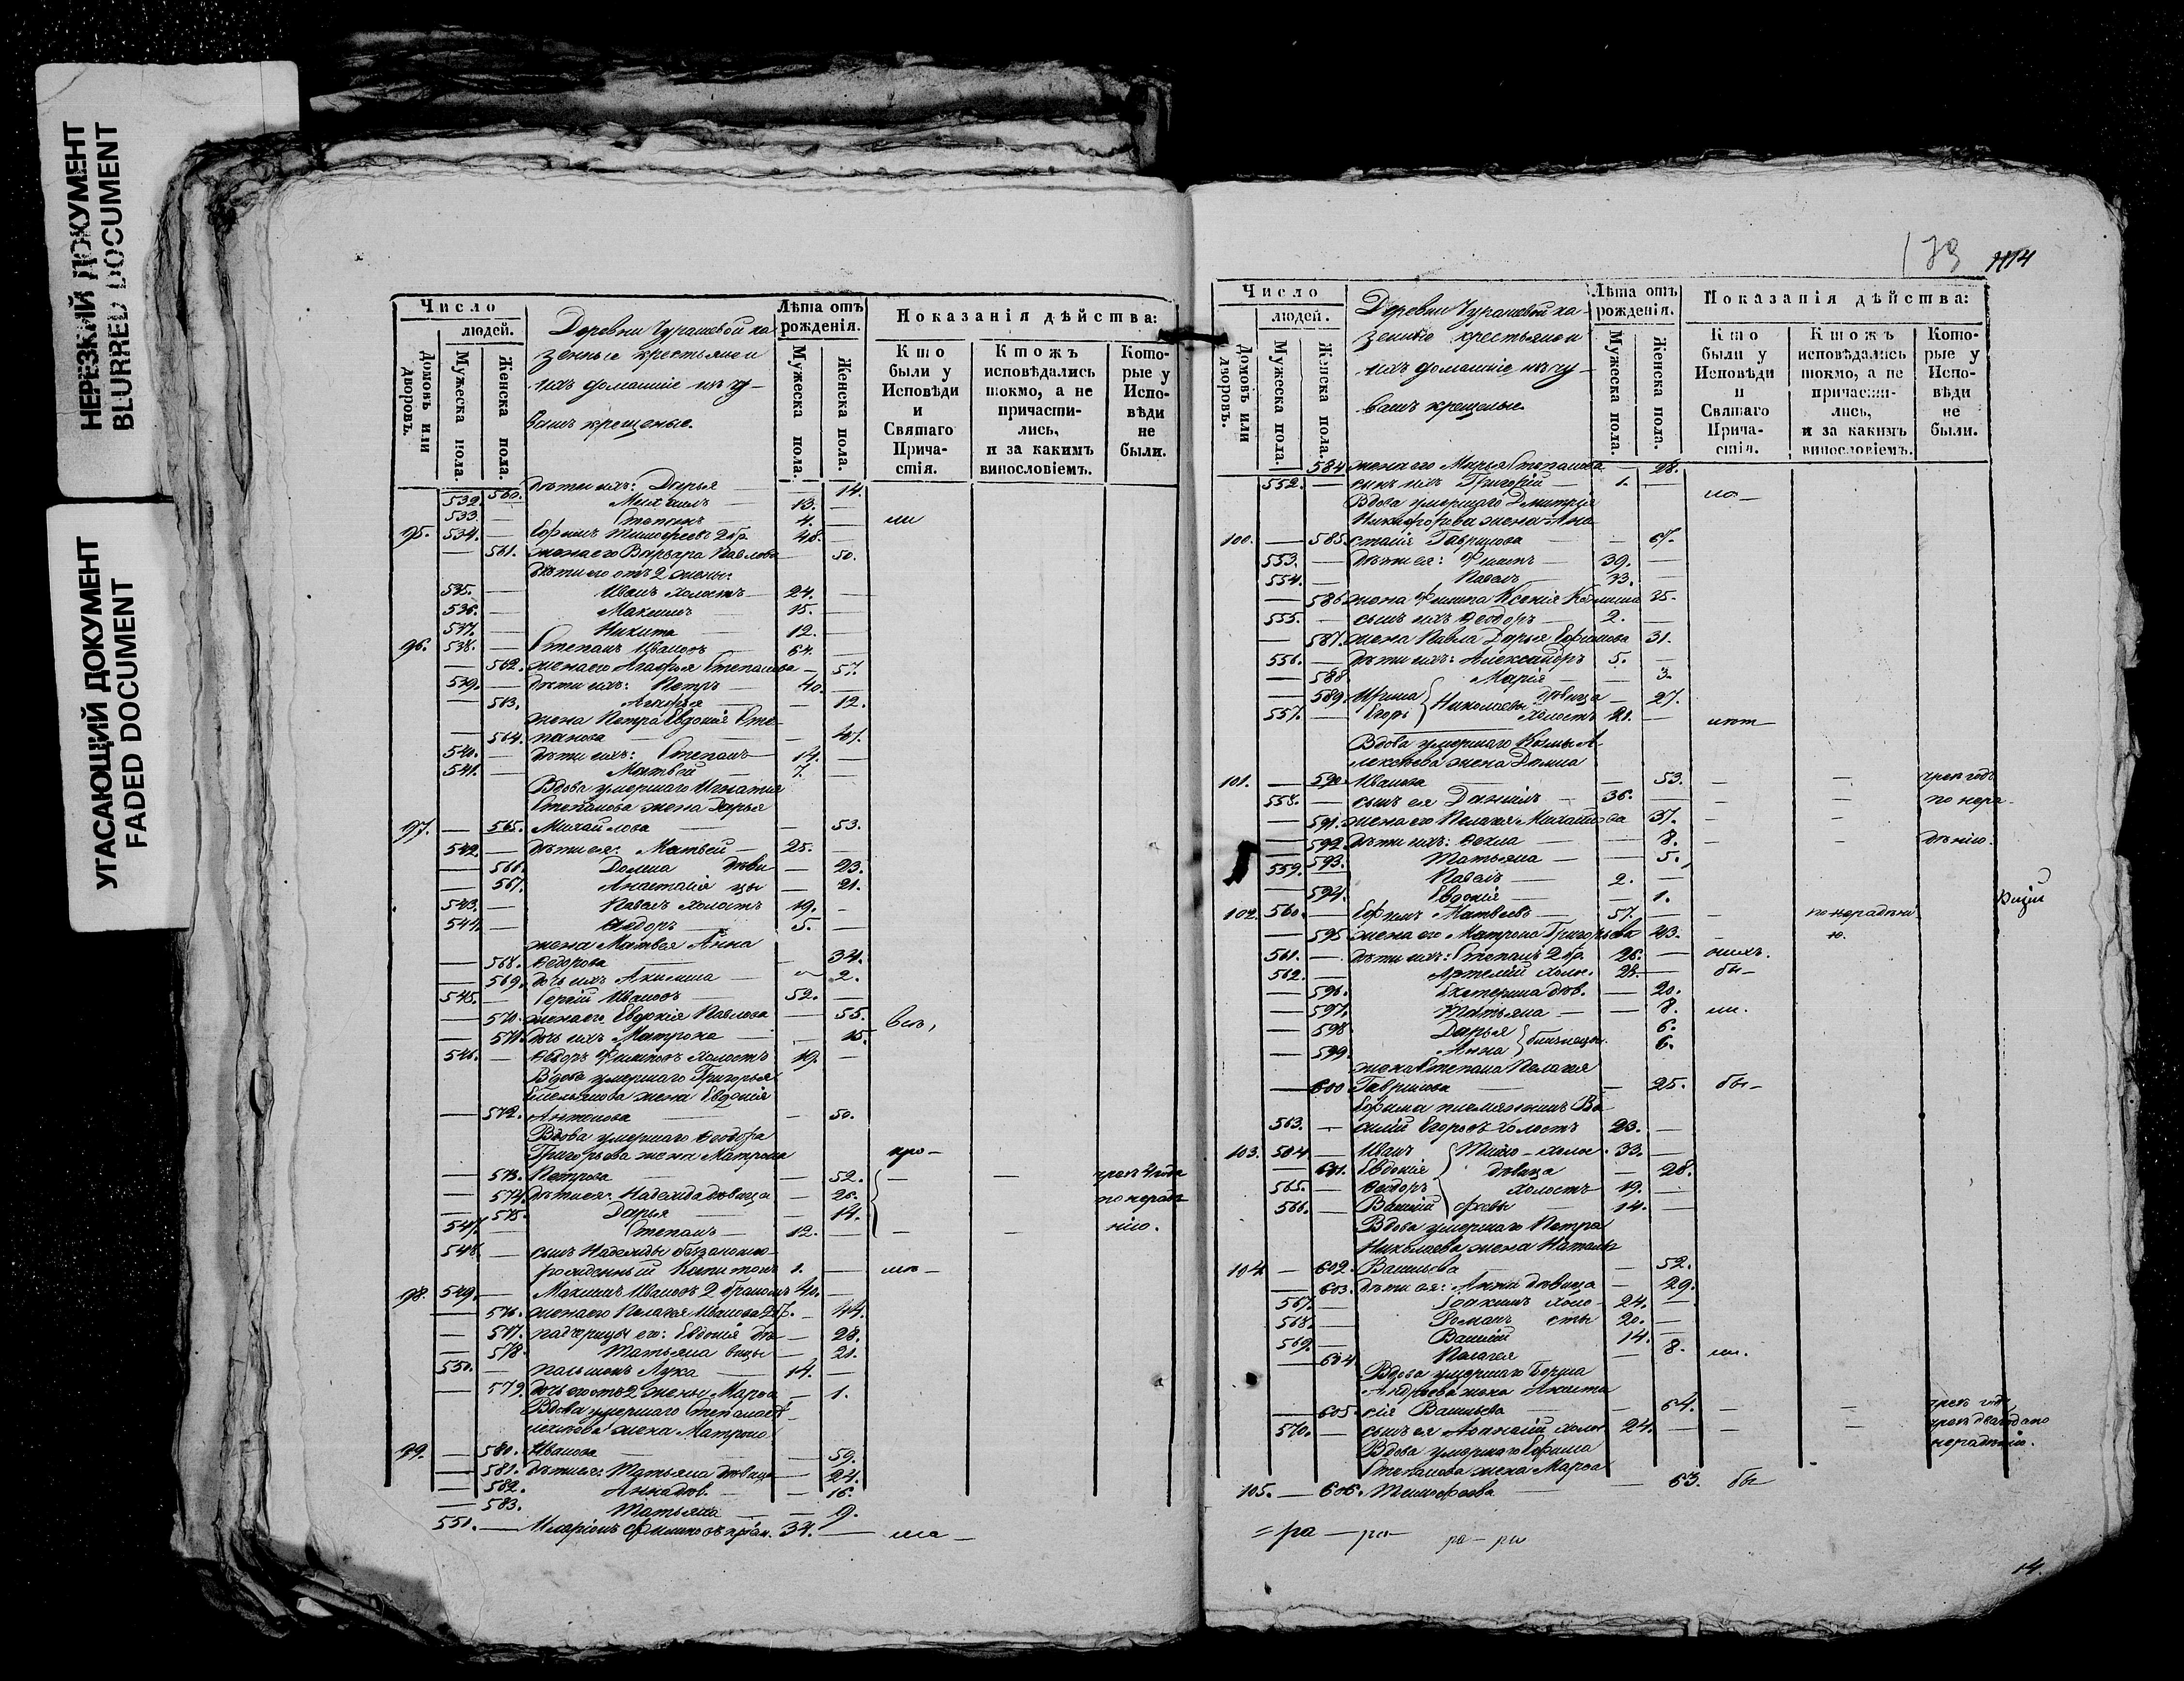 НЕРЕЗКИЙ ДОКУМЕНТ
BLURRED DOCUMENT
УГАСАЮЩИЙ ДОКУМЕНТ
FADED DOCUMENT
Число
людей.
Домовъ или дворовъ.
Мужеска пола.
Женска пола.
Деревни Чурашевой ка-
зенные крестьяне и
ихъ домашніе изъ чу-
вашъ крещеные.
Лѣта отъ рожденія.
Мужеска пола.
Женска пола.
Показанія дѣйства:
Кто были у Исповѣди и Святаго Причастія.
Ктожъ исповѣдались токмо, а не причастились, и за какимъ винословіемъ.
Которые у Исповѣди не были.
560. дѣти ихъ: Дарья — 14.
532. — Михаилъ — 13. —
533. — Степанъ — 4. — ли
95. 534. — Ефимъ Тимофеевъ 2 бр. 48. —
— 561. жена его Варвара Павлова — 50.
дѣти его отъ 2 жены:
535. — Иванъ холостъ 24. —
536. — Максимъ 15. —
537. — Никита 12. —
96. 538. — Степанъ Ивановъ 64. —
— 562. жена его Агафья Степанова — 57.
539. — дѣти ихъ: Петръ — 40. —
— 563. — 12.
жена Петра Евдокія Сте-
— 564. панова — 41.
540. — дѣти ихъ: Степанъ — 14. —
541. — Матвей — 7. —
Вдова умершаго Игнатія
Степанова жена Дарья
97. — 565. Михайлова — 53.
542. — дѣти ея: Матвей — 25. —
— 566. Домна дѣви — 23.
— 567. Анастасія цы — 21.
543. — Павелъ холостъ 19. —
544. — Ѳедоръ — 5. —
жена Матвея Анна
— 568. Ѳедорова — 34.
— 569. дочь ихъ Акилина — 2.
545. — Сергій Ивановъ — 52. —
— 570. жена его Евдокія Павлова — 55. всѣ,
— 571. дочь ихъ Матрона — 15.
546. — Ѳедоръ Филиповъ холостъ 19. —
Вдова умершаго Григорья
Емельянова жена Евдокія
— 572. Антонова — 50.
Вдова умершаго Ѳеодора
Григорьева жена Матрона про-
— 573. Петрова — 52. — — чрезъ 4 года
— 574. дѣти ея: Надежда дѣвица — 26. по нерадѣ
— 575. Дарья — 14.
547. — Степанъ — 12. — — — нію.
548. — сынъ Надежды беззаконно-
рожденный Капитонъ 1. —
98. 549. — Максимъ Ивановъ 2 бракомъ 40. —
— 576. жена его Пелагея Иванова 2 б. — 44.
— 577. падчерицы его: Евдокія дѣ — 28.
— 578. Татьяна вицы — 21.
550. — пасынокъ Лука 14. —
— 579. дочь его отъ 2 жены Марѳа — 1.
Вдова умершаго Степана
жена Матрона
99. — 580. Иванова — 59.
— 581. дѣти ея: Татьяна дѣвица — 24.
— 582. Анна дѣв. — 16.
— 583. Татьяна — 9.
551. — Иларіонъ Филиповъ 34. —
173 114
Число
людей.
Домовъ или дворовъ.
Мужеска пола.
Женска пола.
Деревни Чурашевой ка-
зенные крестьяне и
ихъ домашніе изъ чу-
вашъ крещеные.
Лѣта отъ рожденія.
Мужеска пола.
Женска пола.
Показанія дѣйства:
Кто были у Исповѣди и Святаго Причастія.
Ктожъ исповѣдались токмо, а не причастились, и за какимъ винословіемъ.
Которые у Исповѣди не были.
584 жена его Марья Степанова — 28.
552. — сынъ ихъ Григорій — 1. —
Вдова умершаго Дмитрія
Никифорова жена Ана-
100. — 585. стасія Гаврилова — 67.
553. — дѣти ея: Филипъ — 39. —
554. — Павелъ — 33. —
— 586 жена Филипа Ксенія 35.
555. — сынъ ихъ Ѳеодоръ — 2. —
— 587. жена Павла Дарья Ефимова 31.
556. — дѣти ихъ: Александръ 5. —
— 588 Марія — 3.
— 589 Ирина Николаевы дѣвица — 27.
557. — Егоръ холостъ 21. —
Вдова умершаго Козмы А-
лексѣева жена Домна
101. — 590. Иванова — 53. — — чрезъ годъ
558. — сынъ ея Даніилъ — 36. — — — по нера-
— 591. жена его Пелагея Михайлова 37. — —
— 592 дѣти ихъ: Ѳекла — 8. — — дѣнію.
— 593. Татьяна — 5.
559. — Павелъ — 2. —
— 594. Евдокія — 1.
102. 560. — Ефимъ Матвеевъ — 57. — — по нерадѣні
— 595 жена его Матрона Григорьева 43. — ю.
561. — дѣти ихъ: Степанъ 2 бр. 26. —
562. — Артемій холос. 24. — бы-
— 596. Екатерина дѣв. — 20.
— 597. Татьяна — 8. ли.
— 598 Дарья близнецы. 6.
— 599. Анна 6.
жена Степана Пелагея
— 600 Гаврилова — 25. бы-
Ефима племянникъ Ва-
563. — силій Егоровъ холостъ 23. —
103. 564. — Иванъ Тимо- холос. 33. —
— 601. Евдокія дѣвица — 28.
565. — Ѳеодоръ холостъ 19. —
566. — Василій фѣевы 14. —
Вдова умершаго Петра
Николаева жена Наталья
104. — 602. Васильева — 52.
— 603. дѣти ея: Анна дѣвица — 29.
567. — Іоакимъ холо- 24. —
568. — Романъ сты 20. —
569. — Василій 14. —
— 604 Пелагея — 8. ли.
Вдова умершаго
Андреева жена Анаста
— 605. сія Васильева — 64. — — чрезъ годъ,
570. — сынъ ея Аѳанасій холос 24. — — — чрезъ два года по
нерадѣнію.
Вдова умершаго Ефима
Степанова жена Марѳа
105. — 606. Тимофеева — 63. бы
ра — ра — ра — ра
14.